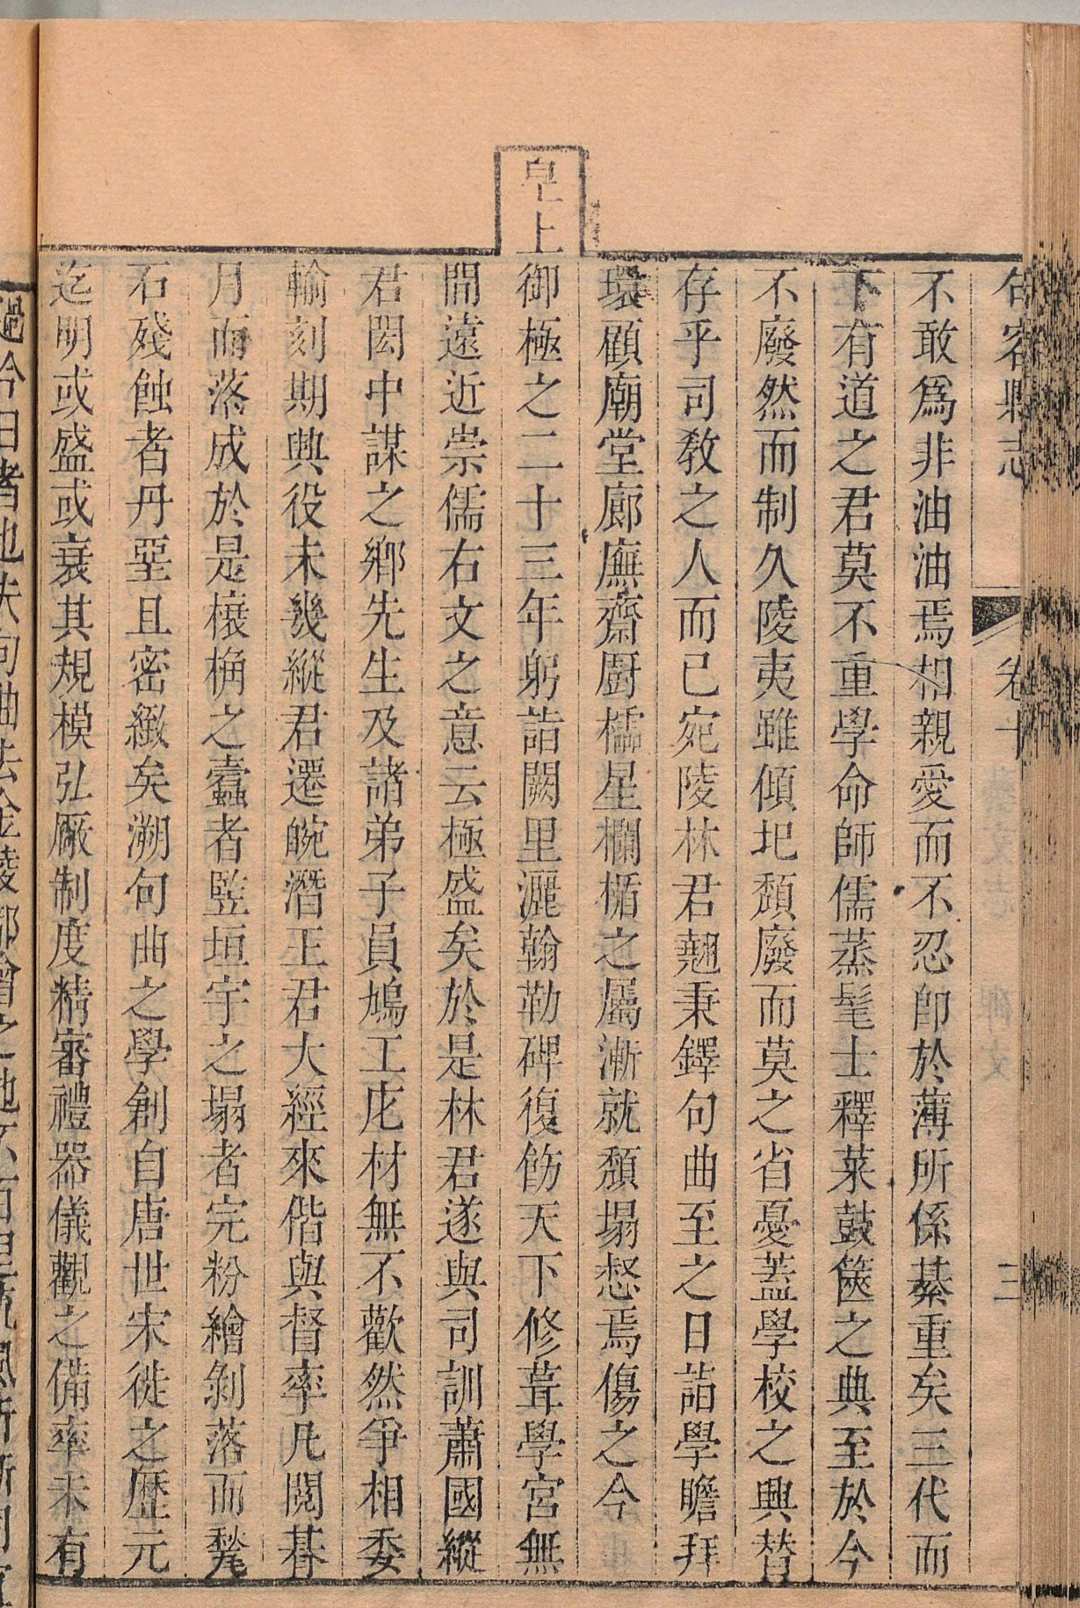 句容縣志 卷十 三
不敢爲非油油焉相親愛而不忍卽於薄所係綦重矣三代而
下有道之君莫不重學命師儒蒸髦士釋菜鼓篋之典至於今
不廢然而制久陵夷雖傾圯頹廢而莫之省憂蓋學校之興替
存乎司敎之人而已宛陵林君翹秉鐸句曲至之日詣學瞻拜
環顧廟堂廊廡齋厨櫺星欄楯之屬漸就頹塌惄焉傷之今
皇上御極之二十三年躬詣闕里灑翰勒碑復飭天下修葺學宮無
間遠近崇儒右文之意云極盛矣於是林君遂與司訓蕭國縱
君閎中謀之鄕先生及諸弟子員鳩工庀材無不歡然爭相委
輸刻期興役未幾縱君遷皖潛王君大經來偕與督率凡閱朞
月而落成於是榱桷之蠹者監垣宇之塌者完粉繪剝落而甃
石殘蝕者丹堊且密緻矣溯句曲之學創自唐世宋徙之歷元
迄明或盛或衰其規模弘厰制度精審禮器儀觀之備率未有